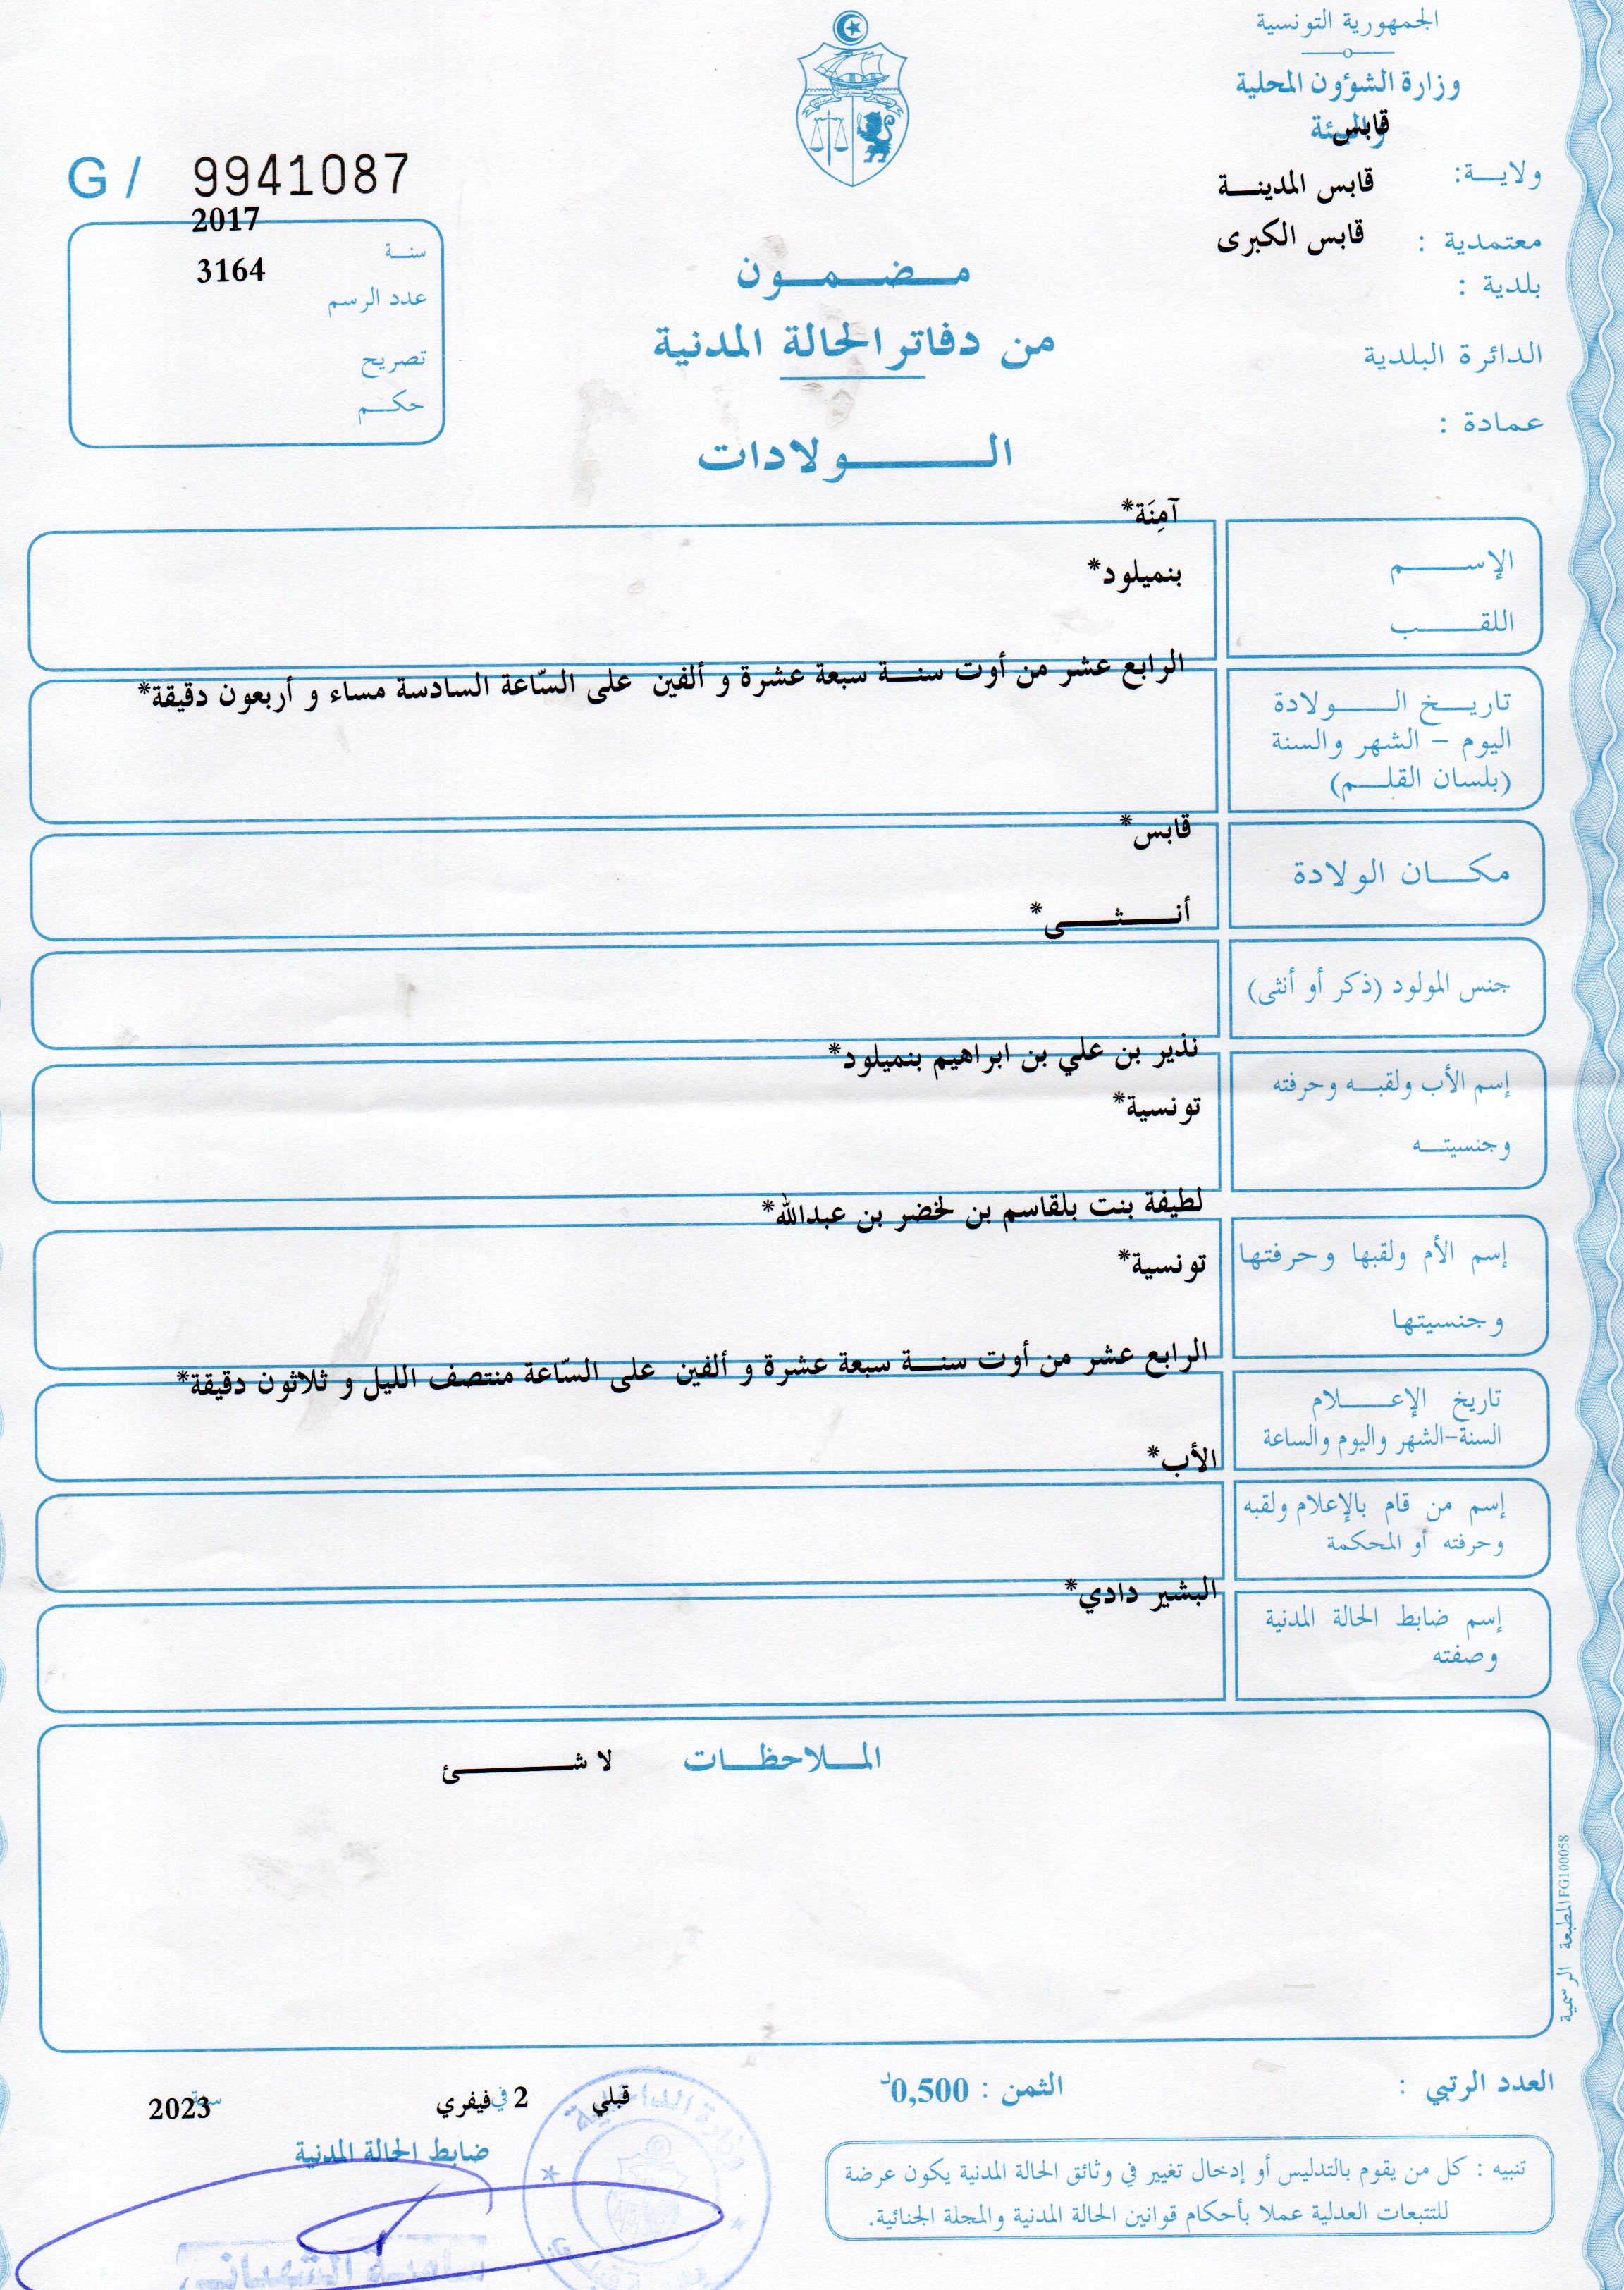 الجمهورية التونسية
وزارة الشؤون المحلية
والبيئة
قابس
ولايـــة:
قابس المدينـــة
معتمدية :
قابس الكبرى
بلدية :
الدائرة البلدية
عمادة :
G / 9941087
سنـــة 2017
عدد الرسم 3164
تصريح
حكـــم
مـــضـــمـــون
من دفاتر الحالة المدنية
الـــــولادات
الإســـــم
آمِنَة*
اللقـــــب
بنميلود*
تاريـــخ الـــــولادة
اليوم – الشهر والسنة
(بلسان القلـــم)
الرابع عشر من أوت سنـــة سبعة عشرة و ألفين على السّاعة السادسة مساء و أربعون دقيقة*
مكـــان الولادة
قابس*
جنس المولود (ذكر أو أنثى)
أنـــثـــى*
إسم الأب ولقبـــه وحرفته
نذير بن علي بن ابراهيم بنميلود*
وجنسيتـــه
تونسية*
إسم الأم ولقبها وحرفتها
لطيفة بنت بلقاسم بن لخضر بن عبدالله*
وجنسيتها
تونسية*
تاريخ الإعـــــلام
السنة-الشهر واليوم والساعة
الرابع عشر من أوت سنـــة سبعة عشرة و ألفين على السّاعة منتصف الليل و ثلاثون دقيقة*
إسم من قام بالإعلام ولقبه
وحرفته أو المحكمة
الأب*
إسم ضابط الحالة المدنية
وصفته
البشير دادي*
المـــلاحظـــات
لا شـــــئ
المطبعة الرسمية FG100058
العدد الرتبي :
الثمن : 0,500د
قبلي في 2 فيفري سنة 2023
ضابط الحالة المدنية
تنبيه : كل من يقوم بالتدليس أو إدخال تغيير في وثائق الحالة المدنية يكون عرضة
للتتبعات العدلية عملا بأحكام قوانين الحالة المدنية والمجلة الجنائية.